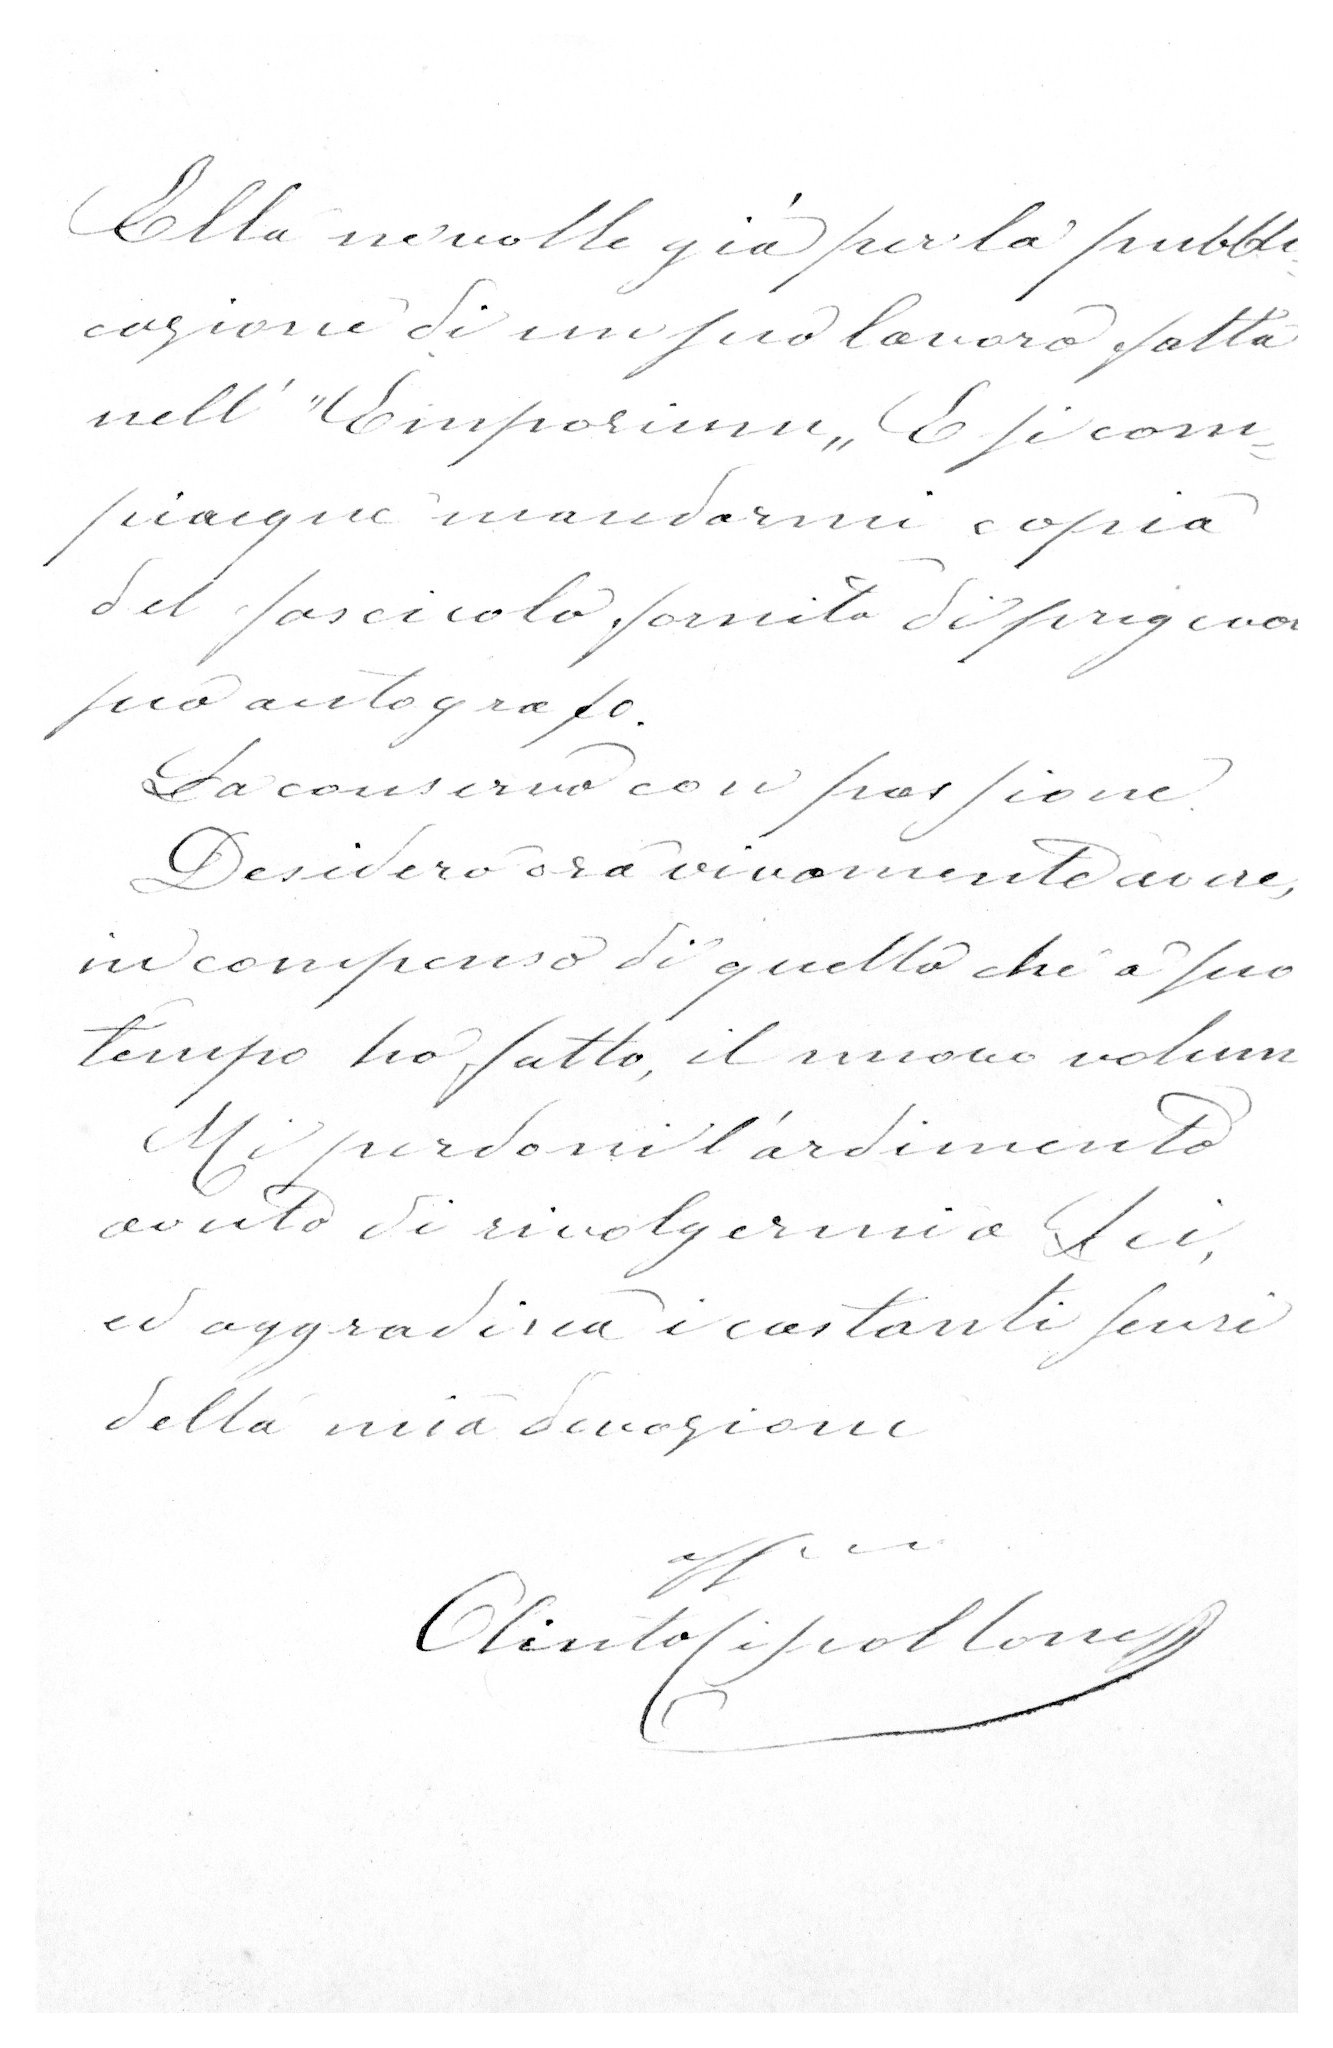 Ella ne volle già per la pubbli=
cazione di un suo lavoro fatta
nell' "Emporium„ E si com=
piacque mandarmi copia
del fascicolo fornita di pregevol
suo autografo.
La conservo con passione.
Desidero ora vivamente avere,
in compenso di quello che a suo
tempo ho fatto, il nuovo volum
Mi perdoni l'ardimento
avuto di rivolgermi a Lei,
ed aggradisca i costanti sensi
della mia devozione
Olinto Cipollone